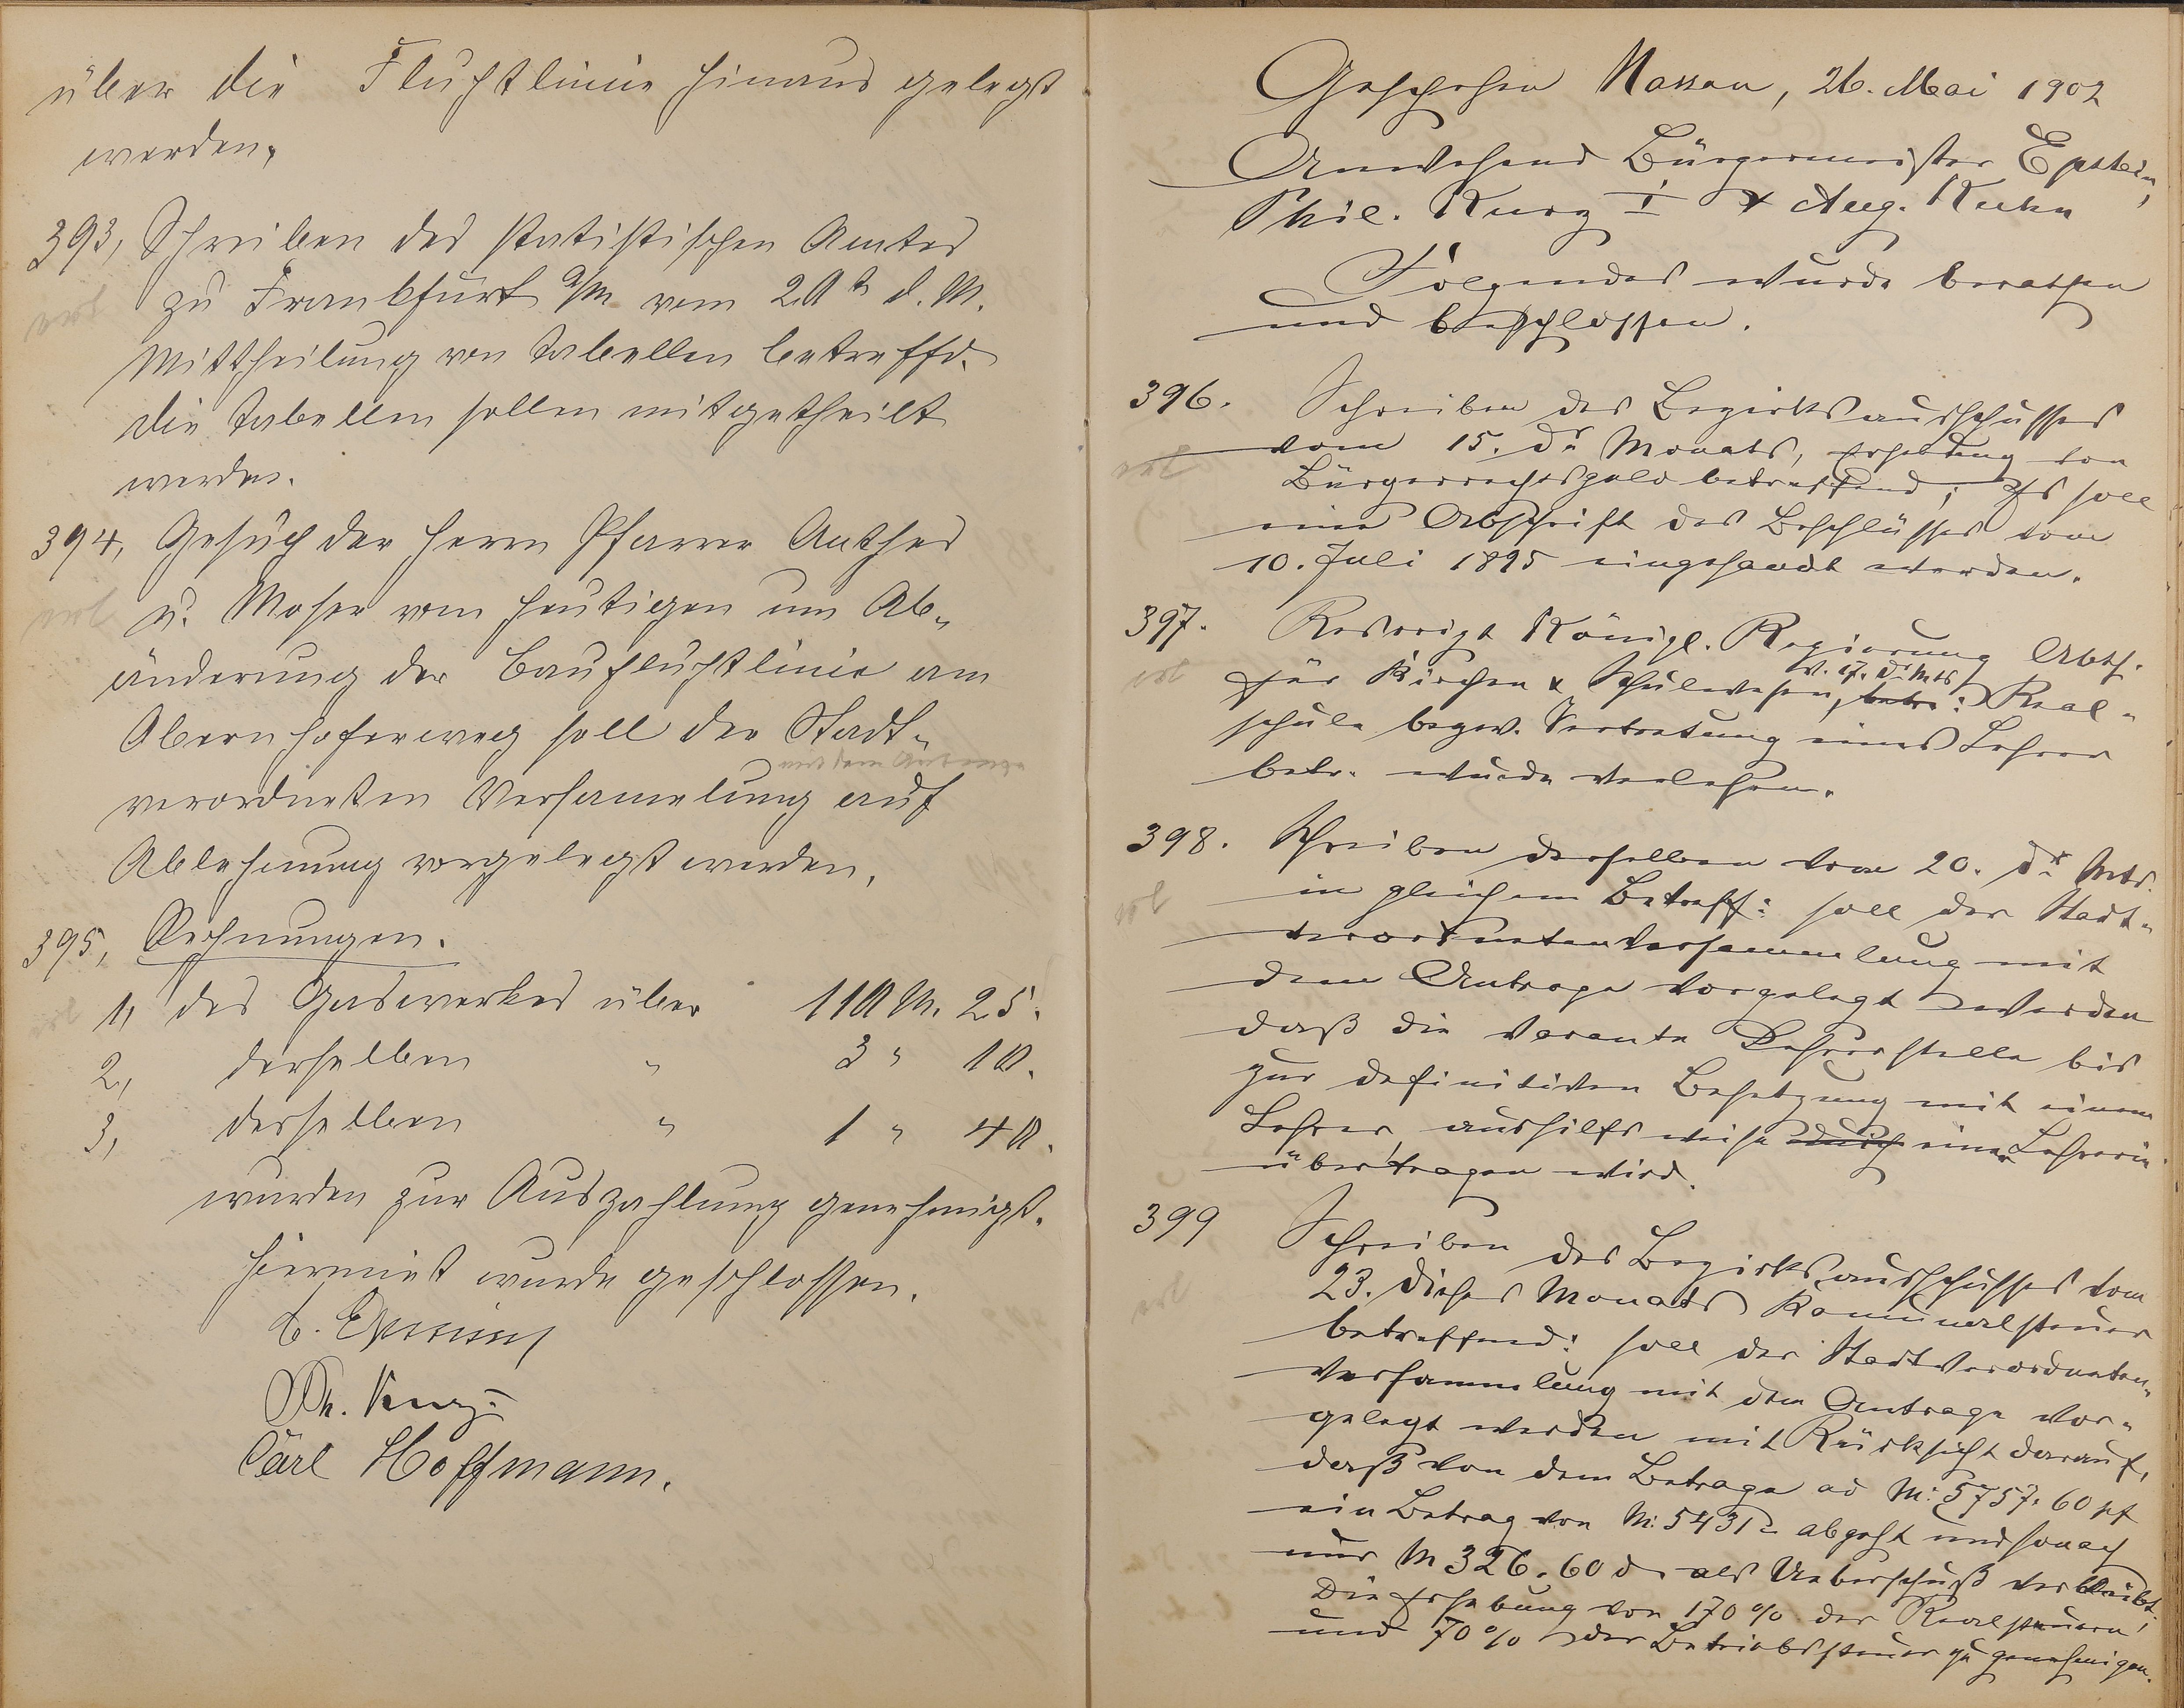 über die Fluchtlinie hinaus gelegt
werden.
393, Schreiben des statistischen Amtes
vol zu Frankfurt a/m vom 20t d. M.
Mittheilung von Tabellen betreffd.
die Tabellen sollen mitgetheilt
werden.
394, Gesuch der Herrn Pfarrer Anthes
vol u. Moser vom heutigen um Ab-
änderung der Baufluchtlinie am
Obernhoferweg soll der Stadt-
mit dem Antrage
verordneten Versamelung auf
Ablehnung vorgelegt werden.
395, Rechnungen.
vol 1, des Gaswerkes über 110 M. 25.
2, derselben " 3 " 10.
3, desselben " 1 " 40.
wurden zur Auszahlung genehmigt.
Hiermit wurde geschlossen.
Ph. Kurz
Carl Hoffmann.
Geschehen Nassau, 26. Mai 1902
Anwesend Bürgermeister Epstein,
Phil. Kurz I & Aug. Kuhn
Folgendes wurde berathen
und beschlossen.
396. Schreiben des Bezirksausschusses
vol vom 15. ds Monats, Erhebung von
Bürgerrechtsgeld betreffend; Es soll
eine Abschrift des Beschlusses vom
10. Juli 1895 eingesandt werden.
397. Rescript Königl. Regierung Abth.
v. 17. ds Mts
vol für Kirchen & Schulwesen, betr: Real-
schule bezw. Vertretung eines Lehrer
betr. wurde verlesen.
398. Schreiben derselben vom 20. ds Mts.
vol in gleichem Betreff: soll der Stadt-
verordnetenversammlung mit
dem Antrage vorgelegt werden
daß die vacante Lehrerstelle bis
zur definitiven Besetzung mit einem
Lehrer, aushilfsweise durch einer Lehrerin
übertragen wird.
399 Schreiben des Bezirksausschusses vom
vol 23. dieses Monats Kommunalsteuer
betreffend: soll der Stadtverordneten-
versammlung mit dem Antrage vor-
gelegt werden mit Rücksicht darauf,
daß von dem Betrage ad M: 5757.60 pf
ein Betrag von M: 5431.- abgeht und sonach
nur M 326.60 d als Ueberschuß verbleibt,
die Erhebung von 170% der Realsteuern,
und 70% der Betriebssteuer zu genehmigen.